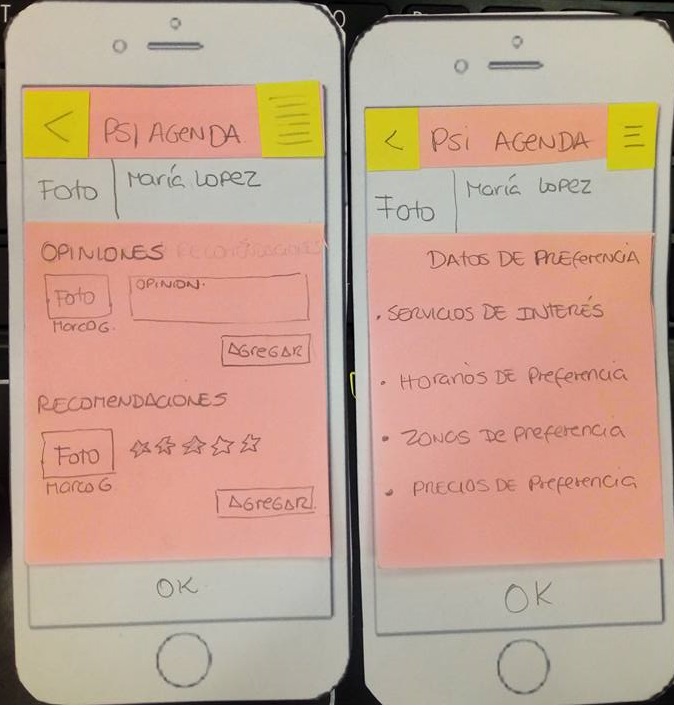 <
PSI AGENDA
Foto
María LOPEZ
OPINIONES RECOMENDACIONES
Foto
OPINION.
Marco G.
AGREGAR
RECOMENDACIONES
Foto
Marco G
AGREGAR
OK
<
PSi AGENDA
Foto
María LOPEZ
DATOS DE PREFERENCIA
. SERVICIOS DE INTERÉS
• Horarios DE Preferencia
• ZONAS De preferencia
• PRECIOS DE Preferencia
OK